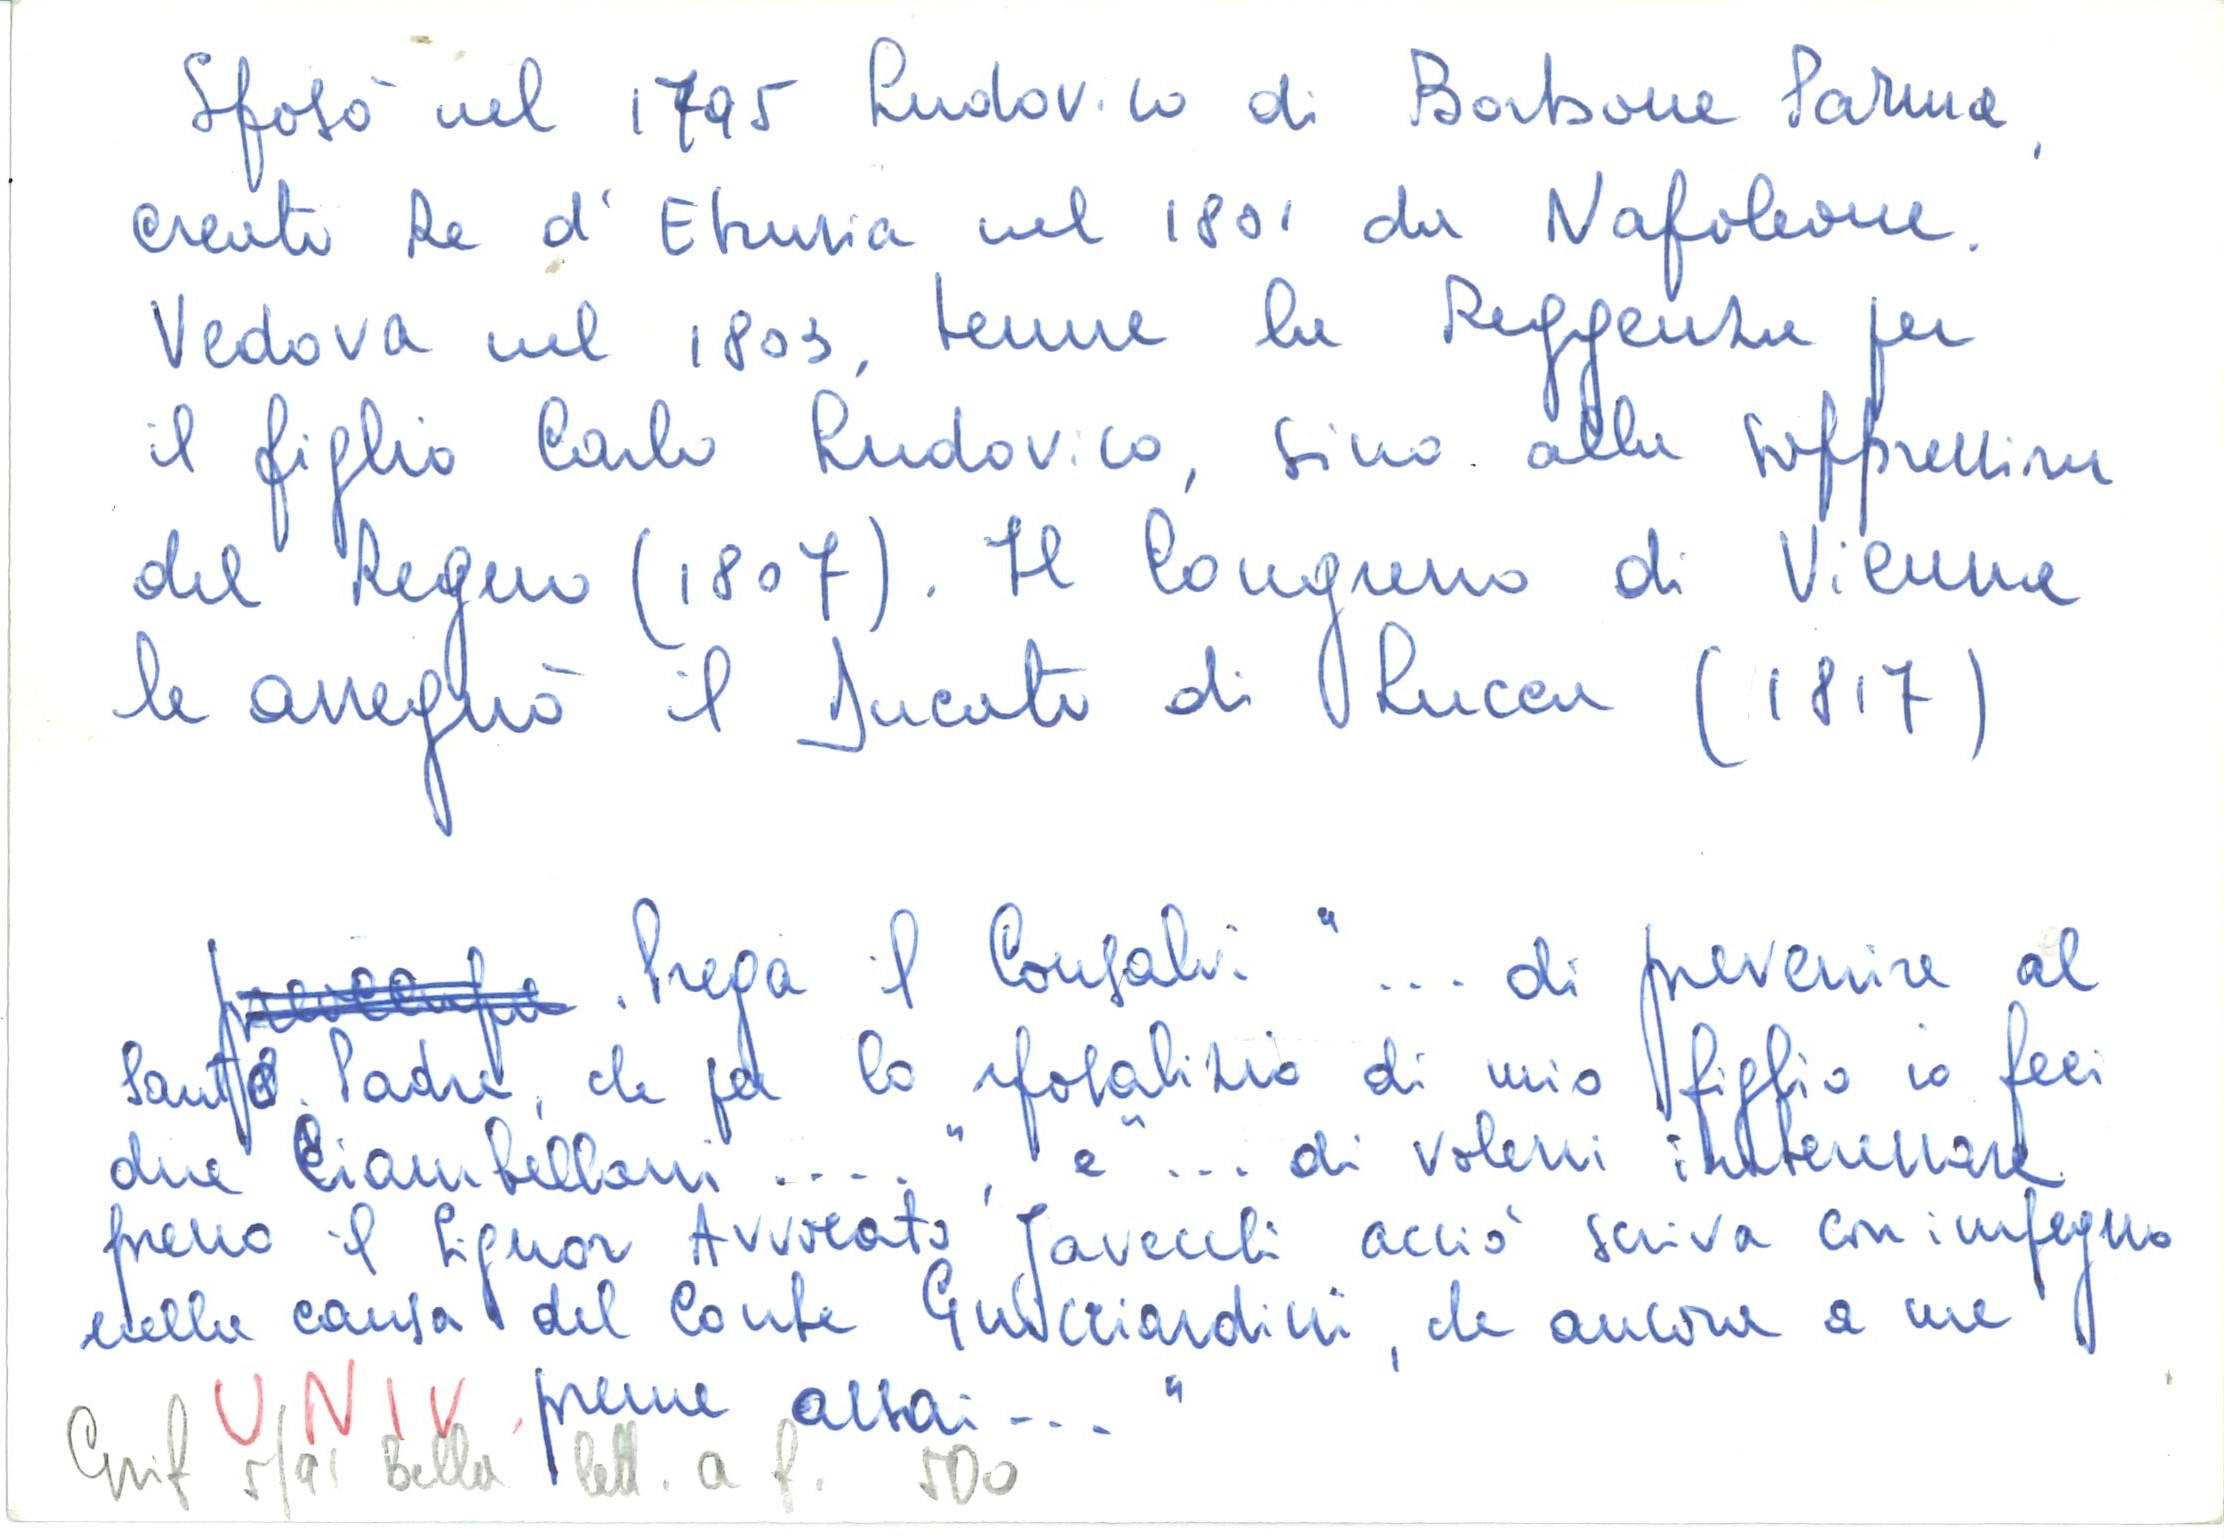 Sposò nel 1795 Ludovico di Borbone Parma,
creato Re d'Etruria nel 1801 da Napoleone.
Vedova nel 1803, tenne la Reggenza per
il figlio Carlo Ludovico, sino alla soppressione
del Regno (1807). Il Congresso di Vienna
le assegnò il Ducato di Lucca (1817)
. Prega il Consalvi "... di prevenire al
Santo Padre, che per lo sposalizio di mio figlio io feci
due Ciambellani .....", e "... di volersi interessare
presso il Signor Avvocato Javecchi acciò scriva con impegno
nella causa del Conte Guicciardini, che ancora a me
preme assai...."
UNIV.
Grif 5/91 Bella lett. a f. 500